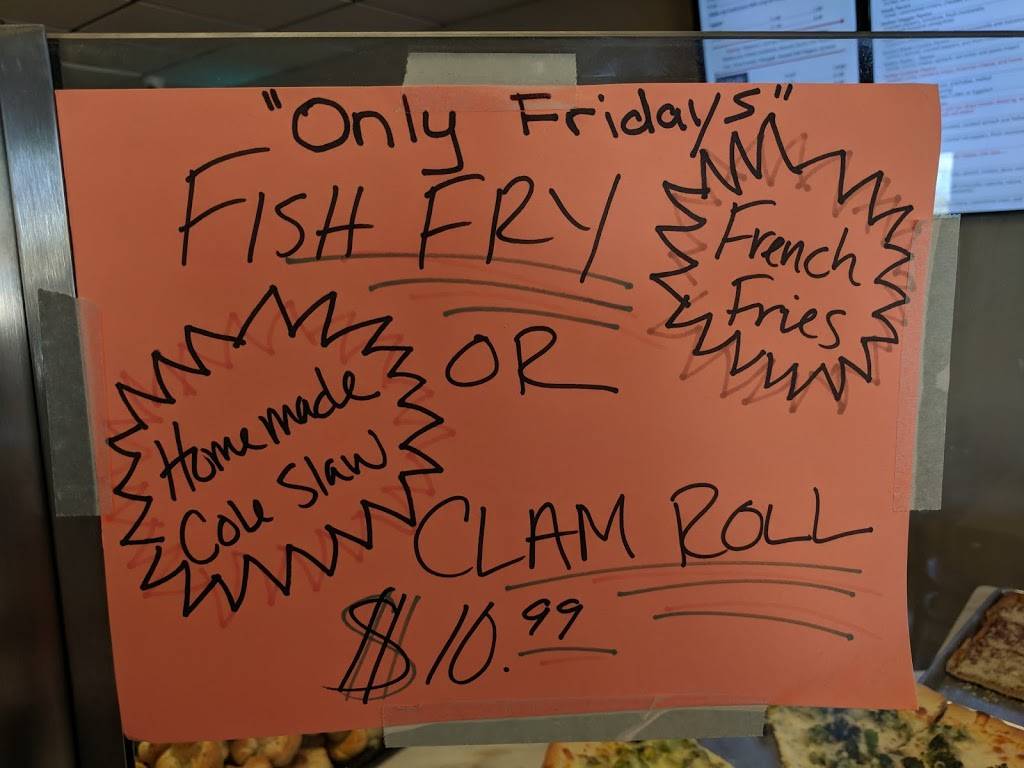 "Only Fridays"
FISH FRY
French
Fries
OR
Homemade
Cole Slaw
CLAM ROLL
$10.99